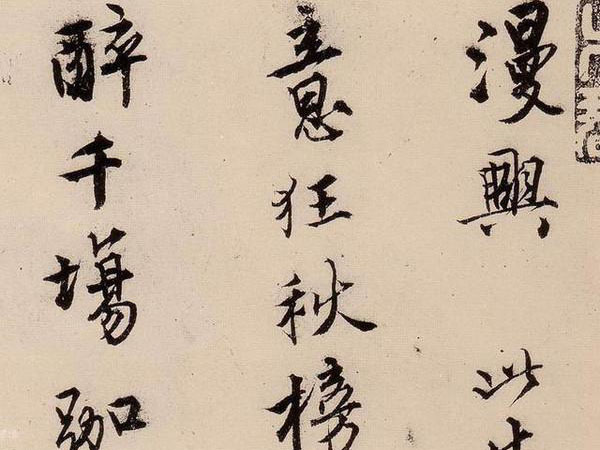 漫興 此生
意狂秋榜
醉千場跏